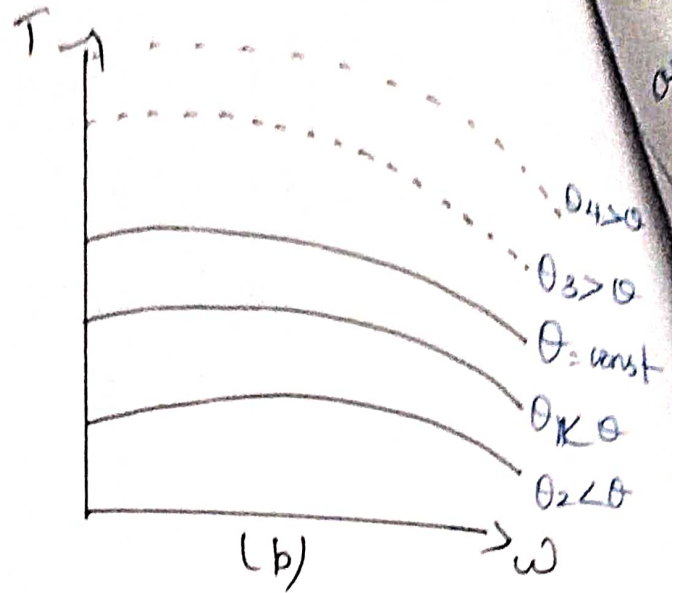 T
θ4>θ
θ3>θ
θ=const
θ1<θ
θ2<θ
(b)
ω